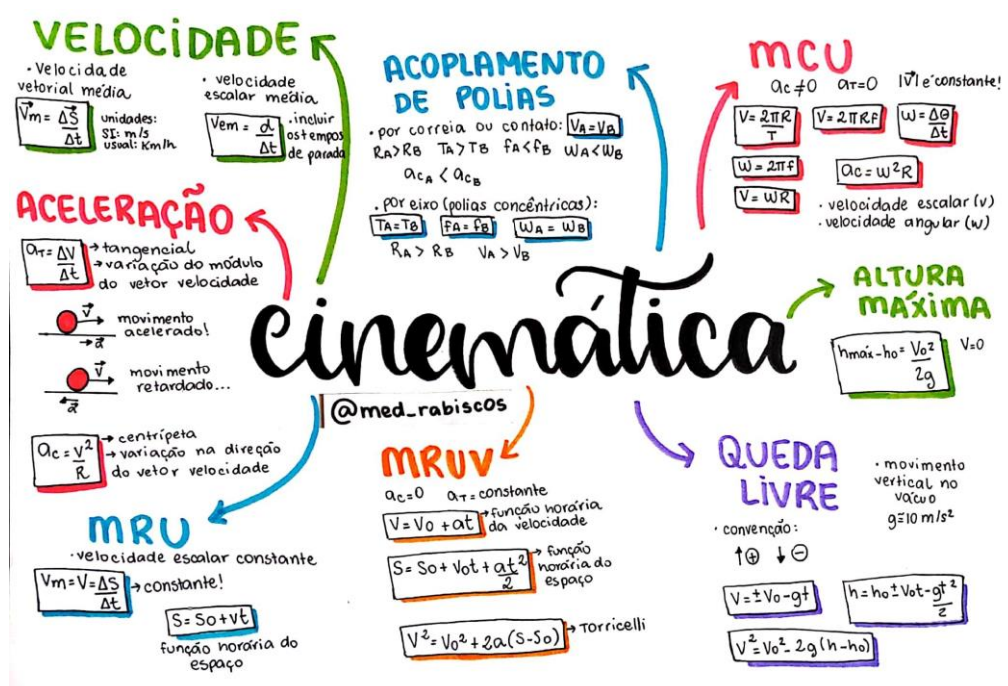 VELOCIDADE
· Velocidade
vetorial média
V⃗m = ΔS⃗
Δt
unidades:
SI: m/s
usual: Km/h
· velocidade
escalar média
Vem = d
Δt
· incluir
os tempos
de parada
ACELERAÇÃO
aT = ΔV
Δt
→ tangencial
→ variação do módulo
do vetor velocidade
v⃗
movimento
acelerado!
→a⃗
v⃗
movimento
retardado...
a⃗
ac = v²
R
→ centrípeta
→ variação na direção
do vetor velocidade
MRU
· velocidade escalar constante
Vm = V = ΔS
Δt
→ constante!
S = So + vt
função horária do
espaço
ACOPLAMENTO
DE POLIAS
· por correia ou contato: VA = VB
RA > RB TA > TB fA < fB WA < WB
acA < acB
· por eixo (polias concêntricas):
TA = TB fA = fB WA = WB
RA > RB VA > VB
cinemática
@med_rabiscos
MRUV
ac = 0 aT = constante
V = Vo + at
→ função horária
da velocidade
S = So + Vot + at²
2
→ função
horária do
espaço
V² = Vo² + 2a(S-So)
→ Torricelli
MCU
ac ≠ 0 aT = 0 |V⃗| é constante!
V = 2πR
T
V = 2πRf
W = Δθ
Δt
W = 2πf
ac = W²R
V = WR
· velocidade escalar (v)
· velocidade angular (w)
ALTURA
MÁXIMA
hmáx - ho = Vo²
2g
V=0
QUEDA
LIVRE
· movimento
vertical no
vácuo
g ≅ 10 m/s²
· convenção:
↑⊕ ↓⊖
V = ± Vo - gt
h = ho ± Vot - gt²
2
V² = Vo² - 2g(h-ho)